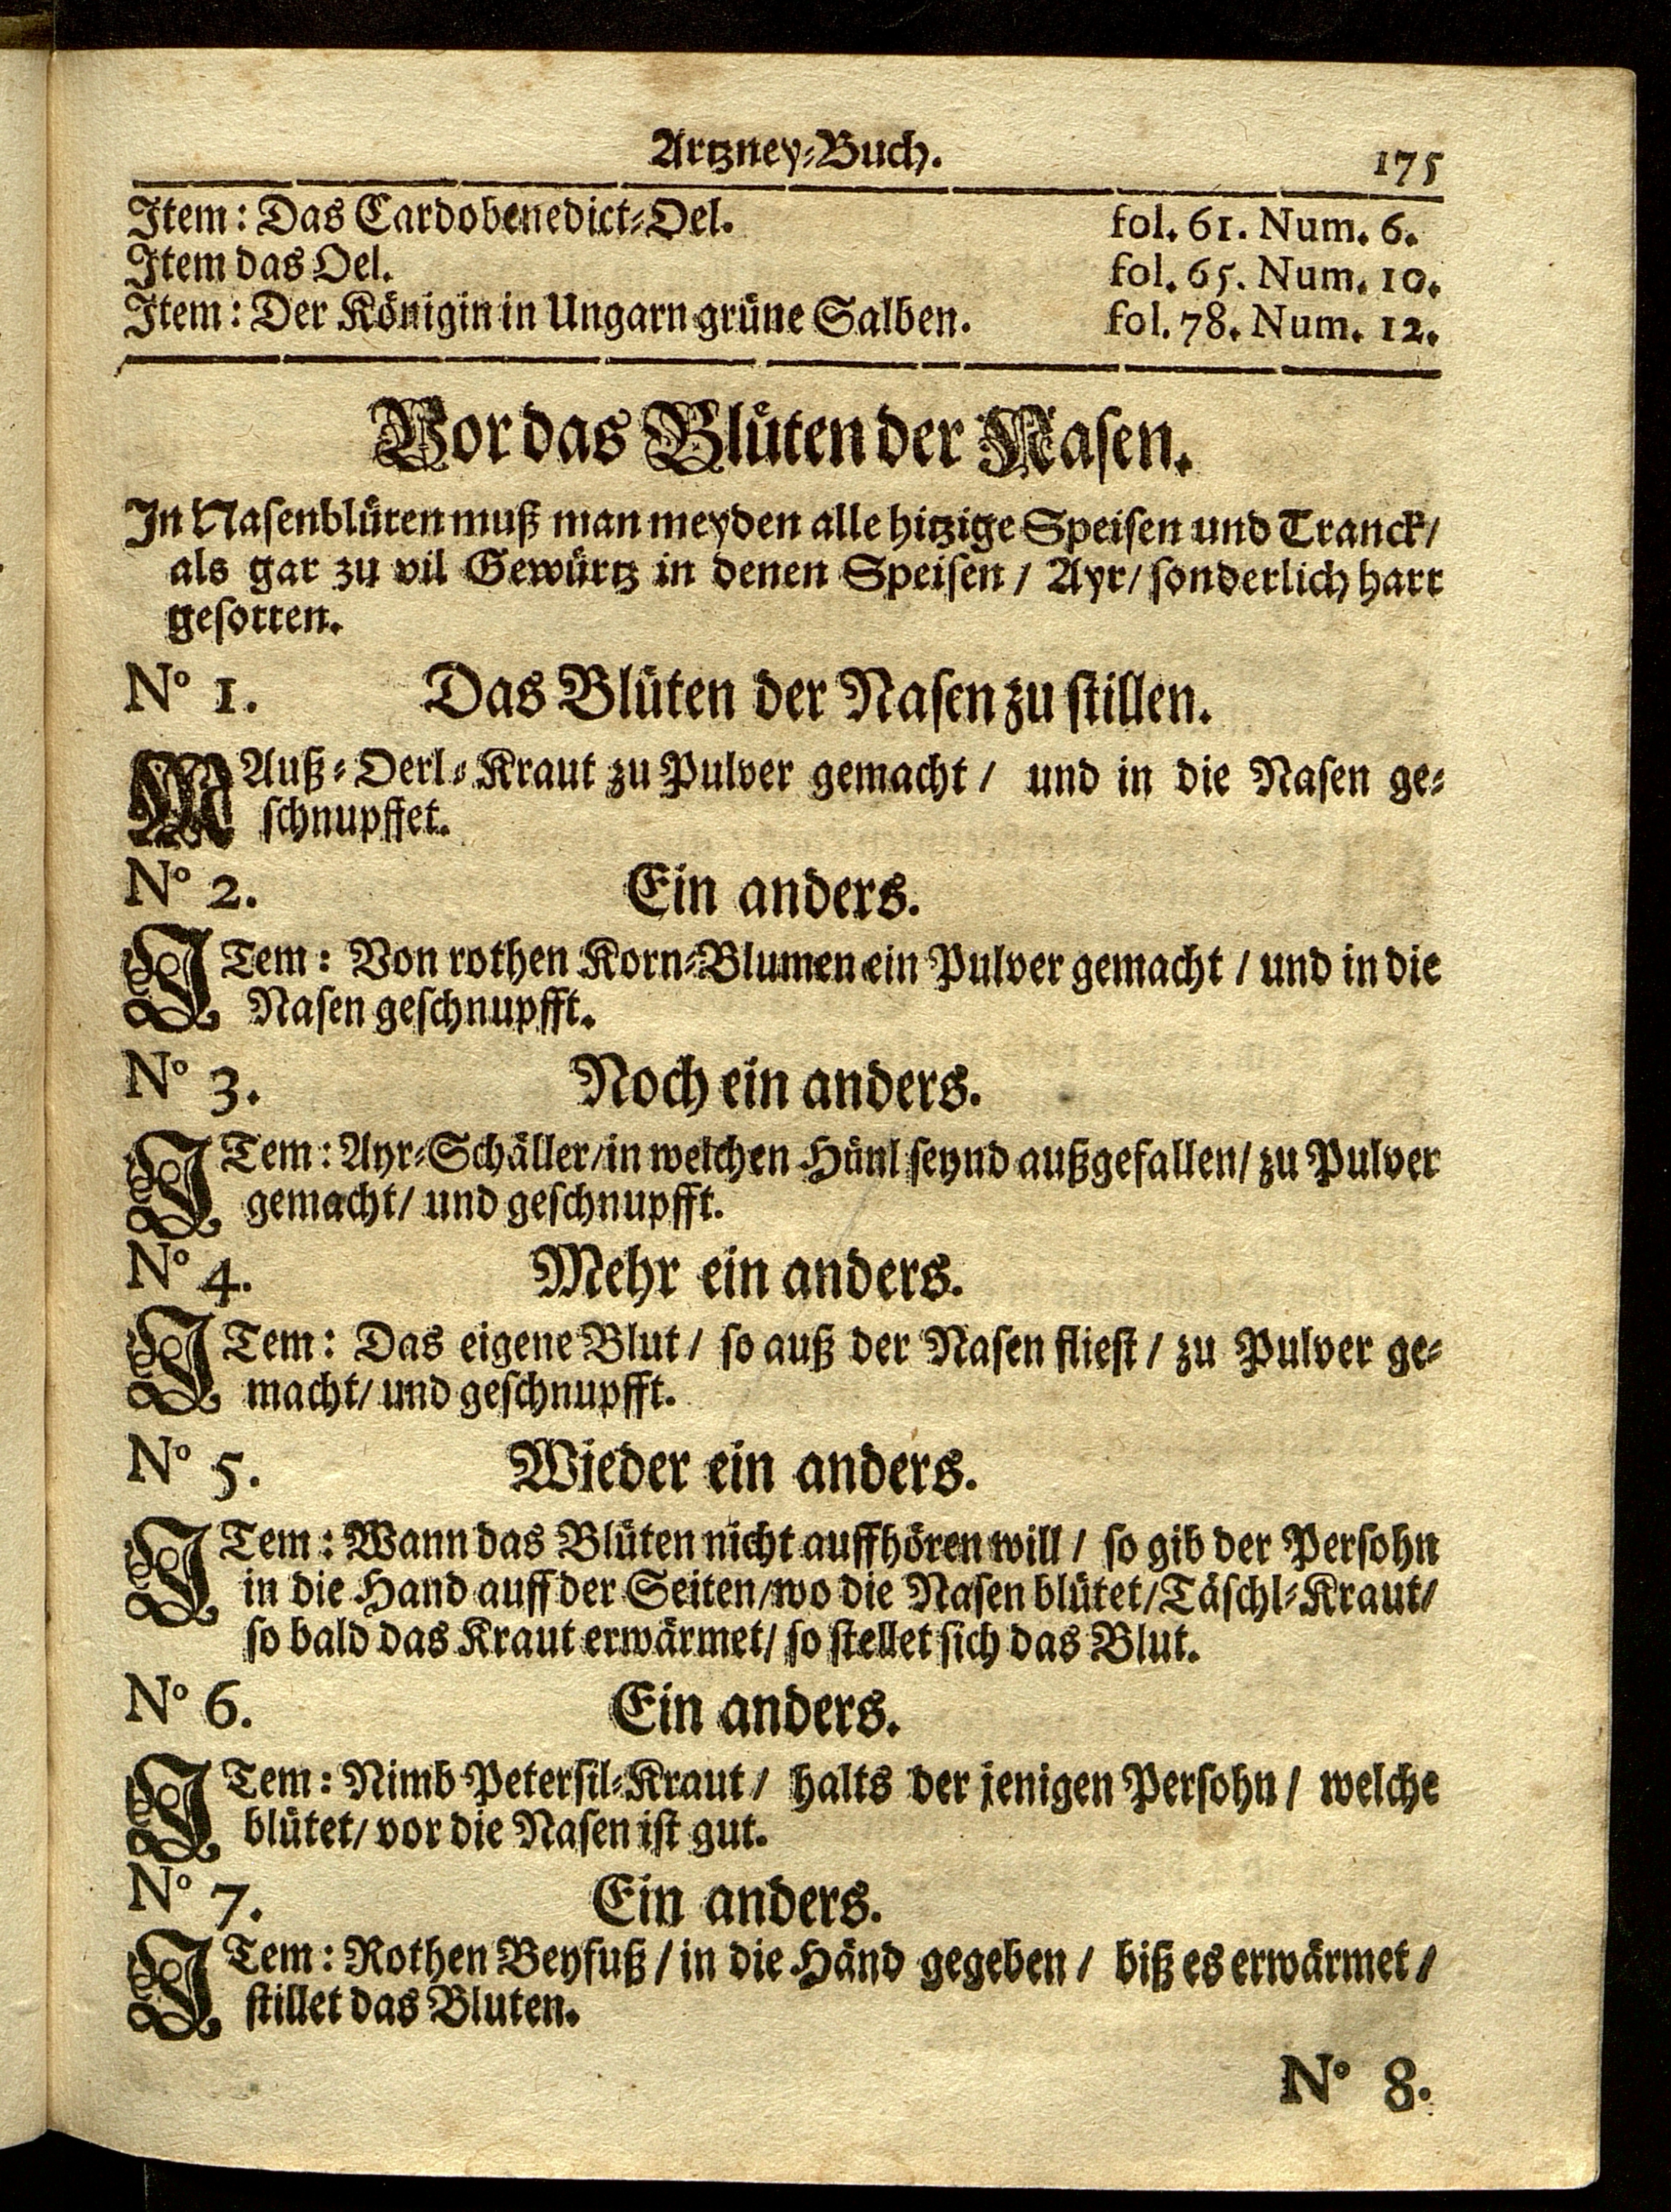 Artzney-Buch. 175
Item: Das Cardobenedict-Oel. fol. 61. Num. 6.
Item das Oel. fol. 65. Num. 10.
Item: Der Königin in Ungarn grüne Salben. fol. 78. Num. 12.
Vor das Blüten der Nasen.
In Nasenblüten muß man meyden alle hitzige Speisen und Tranck/
als gar zu vil Gewürtz in denen Speisen / Ayr/ sonderlich hart
gesotten.
No 1. Das Blüten der Nasen zu stillen.
MAuß-Oerl-Kraut zu Pulver gemacht / und in die Nasen ge-
schnupffet.
No 2. Ein anders.
ITem: Von rothen Korn-Blumen ein Pulver gemacht / und in die
Nasen geschnupfft.
No 3. Noch ein anders.
ITem: Ayr-Schäller/in welchen Hünl seynd außgefallen/ zu Pulver
gemacht/ und geschnupfft.
No 4. Mehr ein anders.
ITem: Das eigene Blut / so auß der Nasen fliest / zu Pulver ge-
macht/ und geschnupfft.
No 5. Wieder ein anders.
ITem: Wann das Blüten nicht auffhören will / so gib der Persohn
in die Hand auff der Seiten/wo die Nasen blütet/Täschl-Kraut/
so bald das Kraut erwärmet/ so stellet sich das Blut.
No 6. Ein anders.
ITem: Nimb Petersil-Kraut / halts der jenigen Persohn / welche
blütet/ vor die Nasen ist gut.
No 7. Ein anders.
ITem: Rothen Beyfuß / in die Händ gegeben / biß es erwärmet /
stillet das Bluten.
No 8.